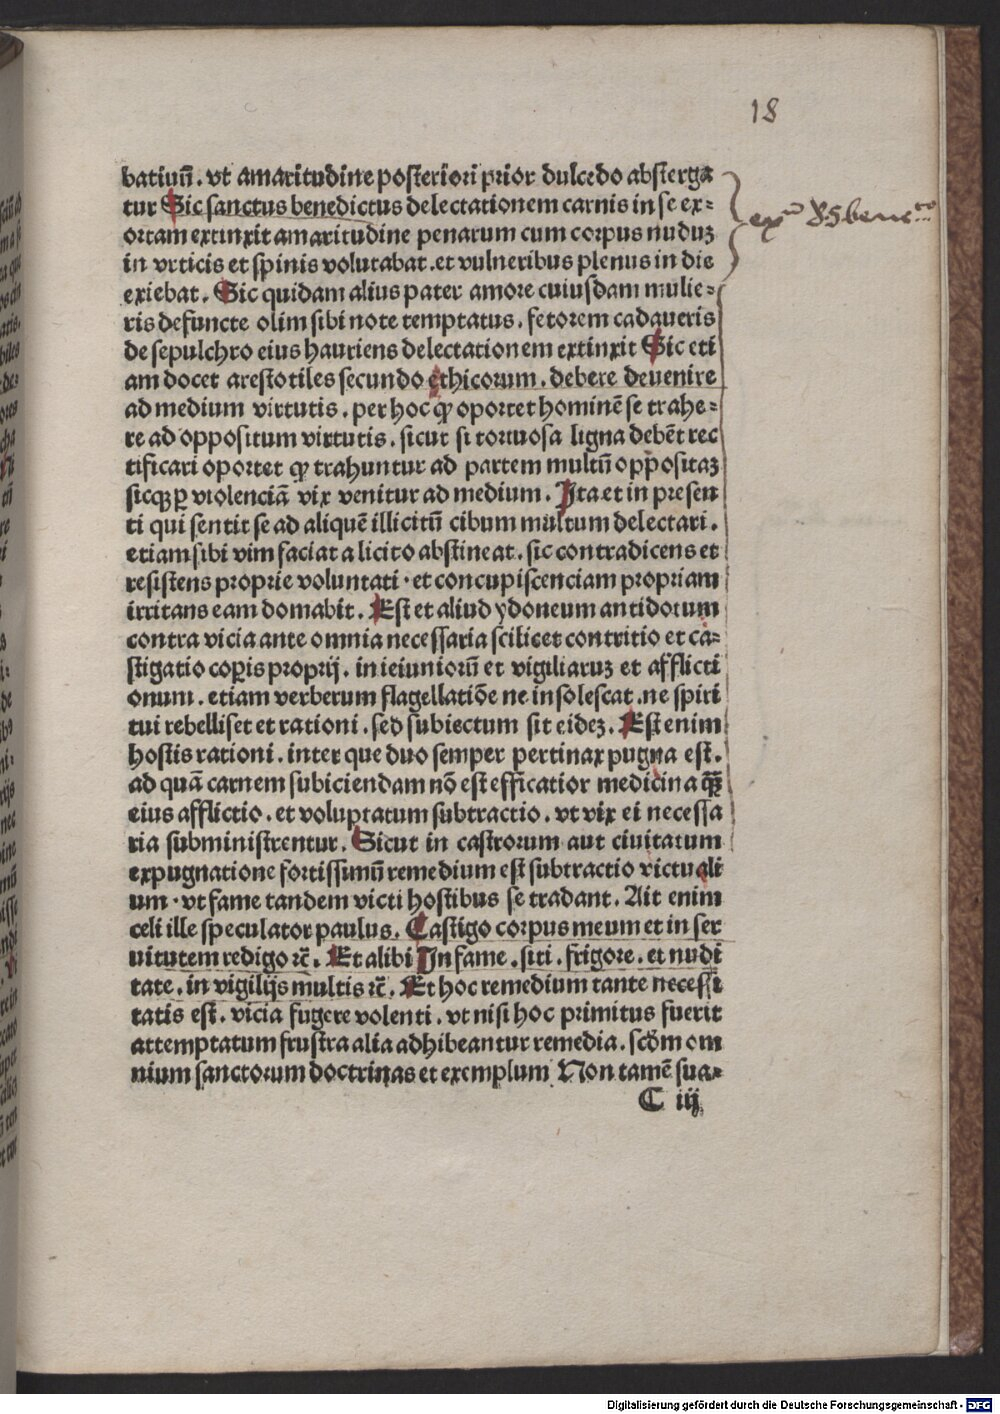 18
batiuū. vt amaritudine posteriori prior dulcedo absterga
tur Sic sanctus benedictus delectationem carnis in se ex⸗
ortam extinxit amaritudine penarum cum corpus nuduꝫ
in vrticis et spinis volutabat .et vulneribus plenus in die
exiebat. Sic quidam alius pater amore cuiusdam mulie⸗
ris defuncte olim sibi note temptatus. fetorem cadaueris
de sepulchro eius hauriens delectationem extinxit Sic eti
am docet arestotiles secundo ethicorum. debere deuenire
ad medium virtutis. per hoc ꝙ oportet hominē se trahe⸗
re ad oppositum virtutis. sicut si tortuosa ligna debēt rec
tificari oportet ꝙ trahuntur ad partem multū oppositaꝫ
sicqꝫ ꝑ violenciā vix venitur ad medium. Ita et in presen
ti qui sentit se ad aliquē illicitū cibum multum delectari.
etiam sibi vim faciat a licito abstineat. sic contradicens et
resistens proprie voluntati · et concupiscenciam propriam
irritans eam domabit. Est et aliud ydoneum antidotum
contra vicia ante omnia necessaria scilicet contritio et ca⸗
stigatio coꝑis proprij. in ieiuniorū et vigiliaruꝫ et afflicti
onum. etiam verberum flagellatiōe ne insolescat .ne spiri
tui rebelliset et rationi. sed subiectum sit eideꝫ. Est enim
hostis rationi. inter que duo semper pertinax pugna est.
ad quā carnem subiciendam nō est efficatior medicina qꝫ̄
eius afflictio. et voluptatum subtractio. vt vix ei necessa
ria subministrentur. Sicut in castrorum aut ciuitatum
expugnatione fortissimū remedium est subtractio victuali
um · vt fame tandem victi hostibus se tradant. Ait enim
celi ille speculator paulus. Castigo corpus meum et in ser
uitutem redigo ⁊c̄. Et alibi In fame. siti. frigore. et nudi
tate. in vigilijs multis ⁊c̄. Et hoc remedium tante necessi
tatis est. vicia fugere volenti. vt nisi hoc primitus fuerit
attemptatum frustra alia adhibeantur remedia. scḋm om
nium sanctorum doctrinas et exemplum Non tamē sua⸗
C iij
Digitalisierung gefördert durch die Deutsche Forschungsgemeinschaft - DFG